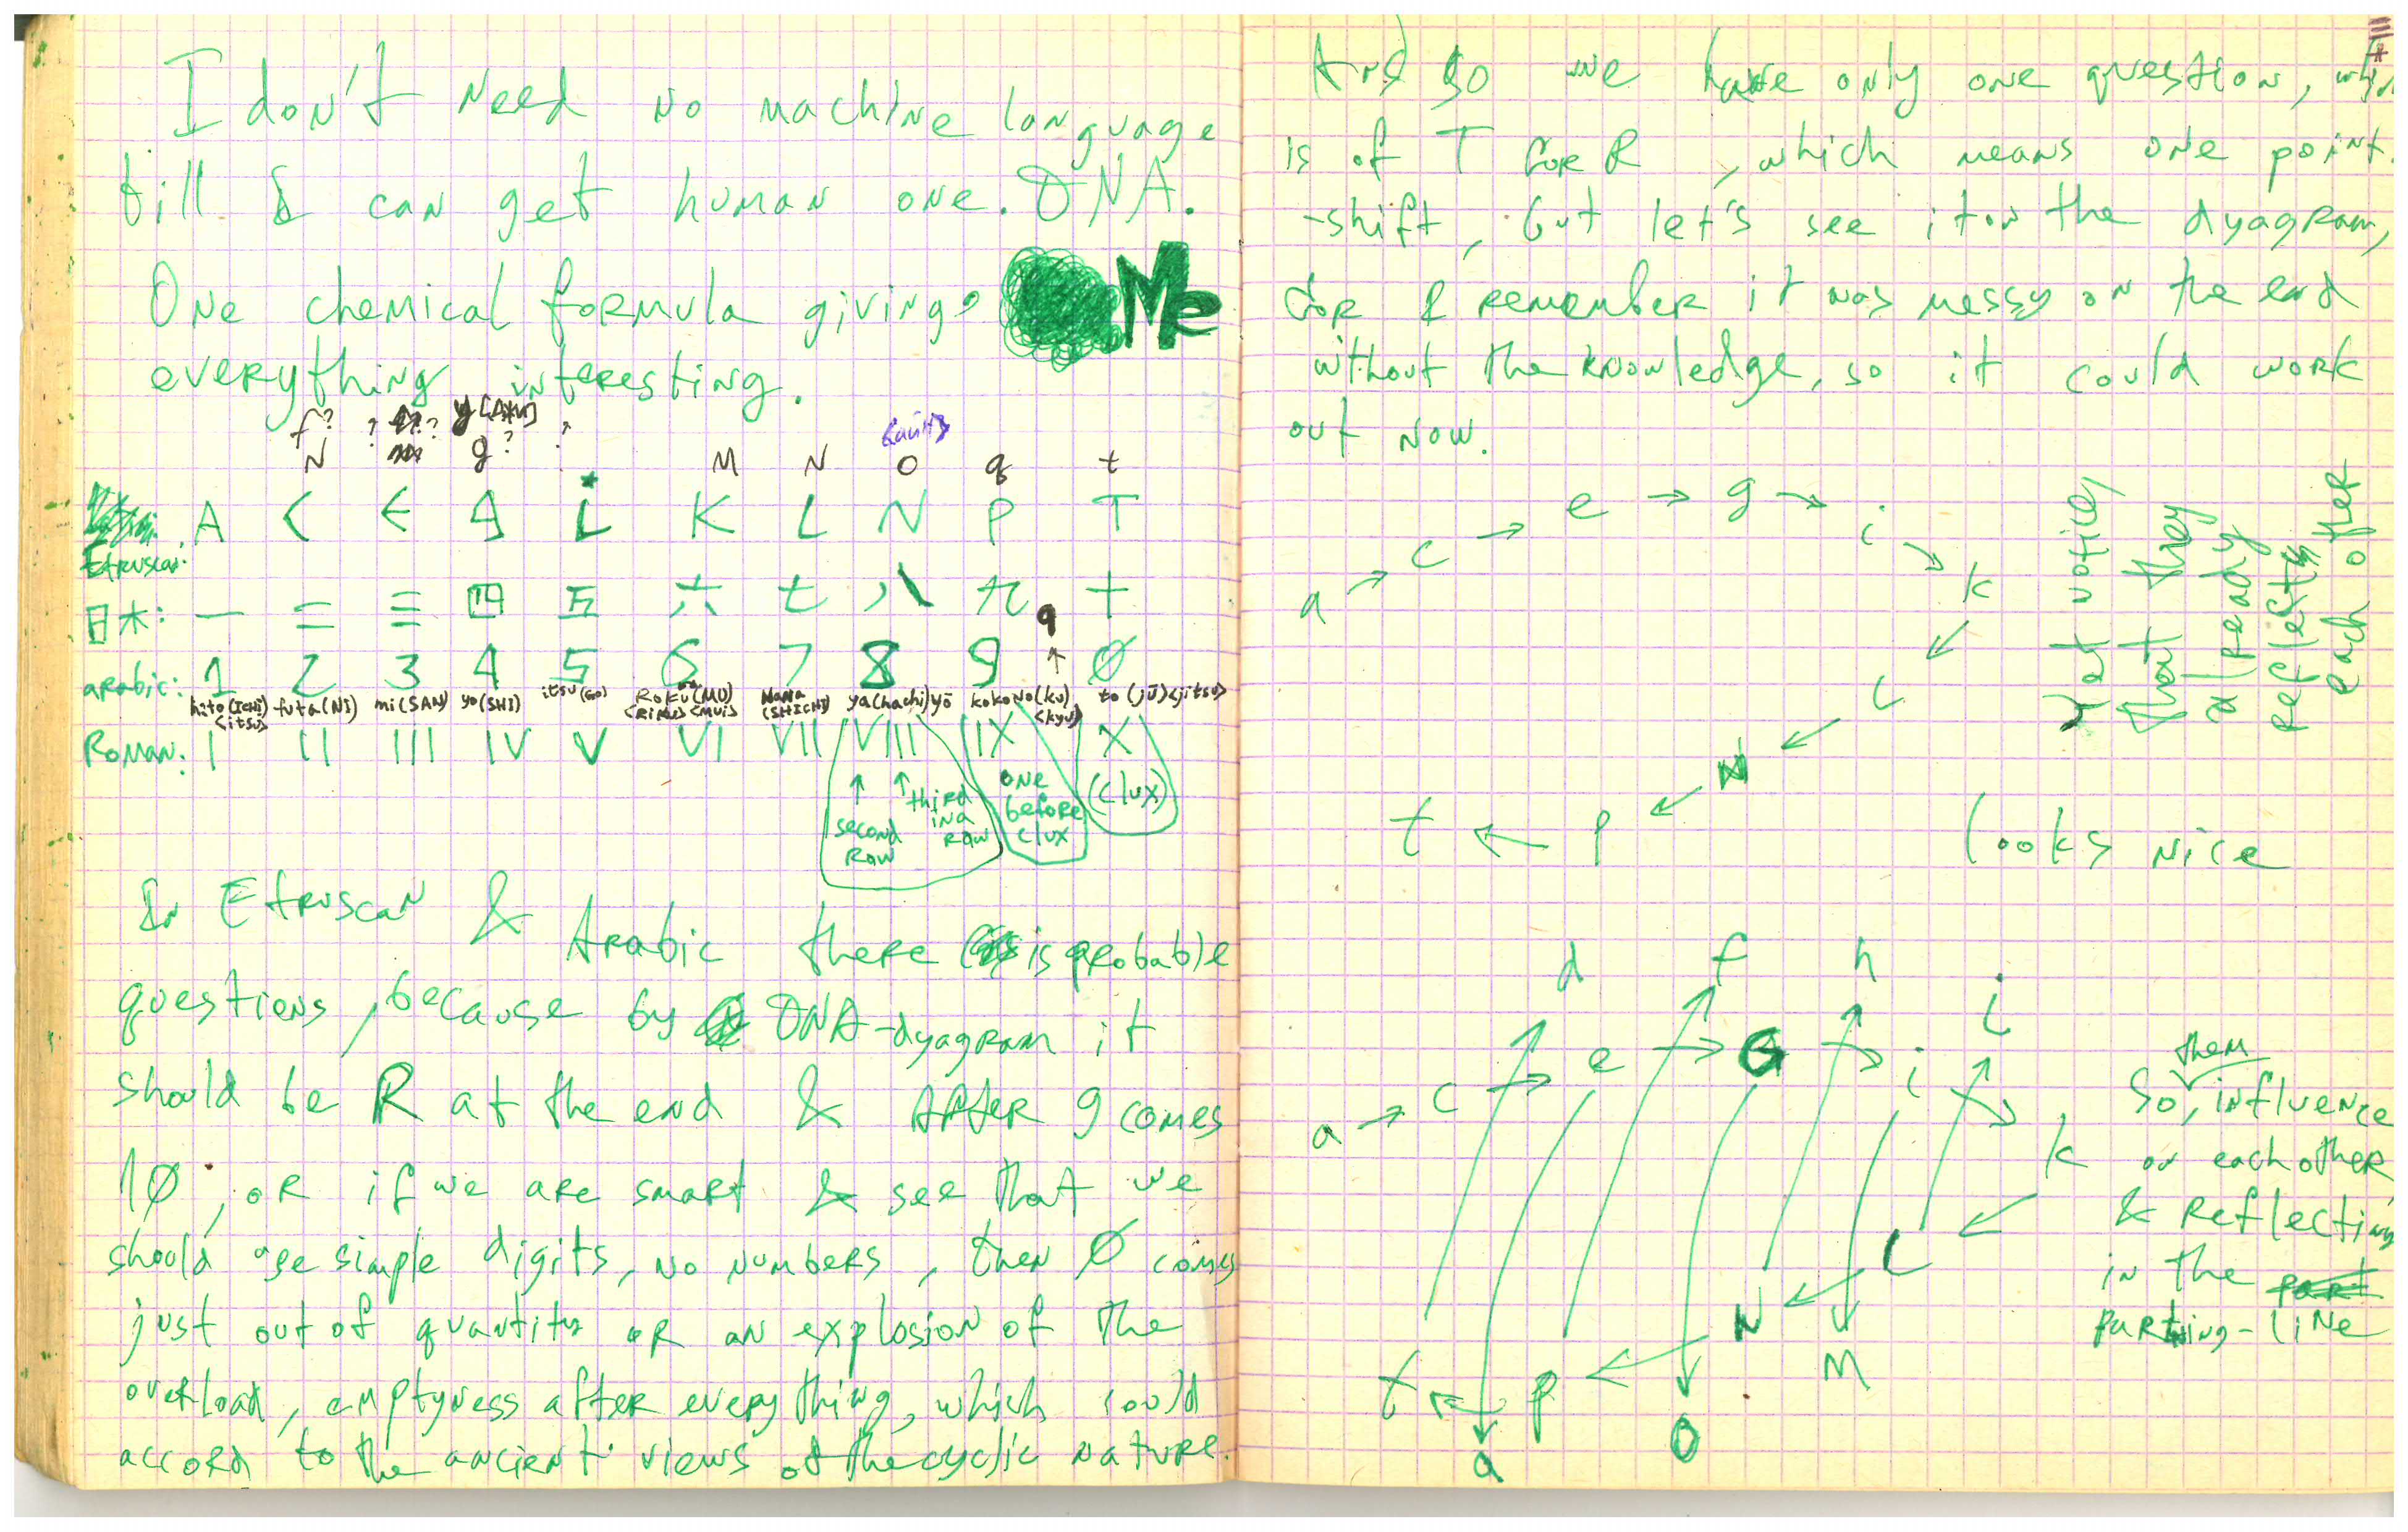 I don't need no machine language
till I can get human one. DNA.
One chemical formula giving Me
everything interesting.
f? ? ? y [A*U] ?
N g? M N O q t
A < ∈ i K L N P T
Etruscan:
日木: 一 二 三 四 五 六 七 八 九 十
9
arabic: 1 2 3 4 5 6 7 8 9 ↑ Ø
hito (ICHI) futa (NI) mi (SAN) yo (SHI) itsu (GO) ROKU (MU) NANA ya (hachi) yō kokono (ku) to (jū) <jitsu>
<itsu> (SHICHI) <kyu>
Roman: I II III IV V VI VII VIII IX X
↑ ↑ one (clux)
second third before
raw in a clux
raw
In Etruscan & Arabic there is probable
questions, because by DNA-dyagram it
should be R at the end & After 9 comes
1Ø, or if we are smart & see that we
should use simple digits, no numbers, then Ø comes
just out of quantity or an explosion of the
overload, emptyness after everything, which could
accord to the ancient views of the cyclic nature.
And so we have only one question, which
is of T for R, which means one point
-shift, but let's see it on the dyagram,
for I remember it was messy on the end
without the knowledge, so it could work
out now.
a → c → e → g → i → k
← L ← N ← p ← t
Yet notice,
that they
already
reflects
each other
looks nice
d f h L
a → c → e → G → i → k
← L ← N ← p ← t
q O M
them
So, influence
on each other
& reflecting
in the
parting-line